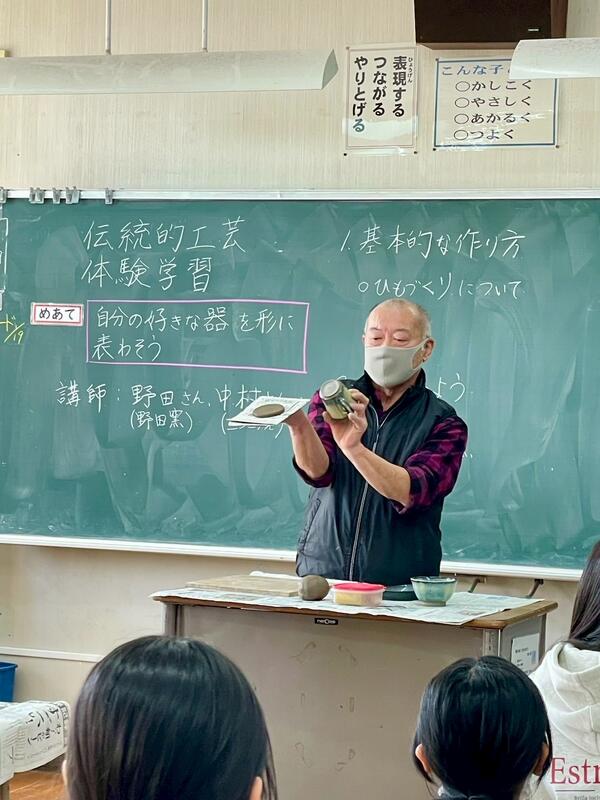 表現する
ひょうげん
つながる
やりとげる
こんな子
○かしこく
○やさしく
○あかるく
○つよく
伝統的工芸
体験学習
めあて
自分の好きな器を形に
表わそう
講師：野田さん、中村
(野田窯)
1.基本的な作り方
○ひもづくりについて
よう
19
Estr